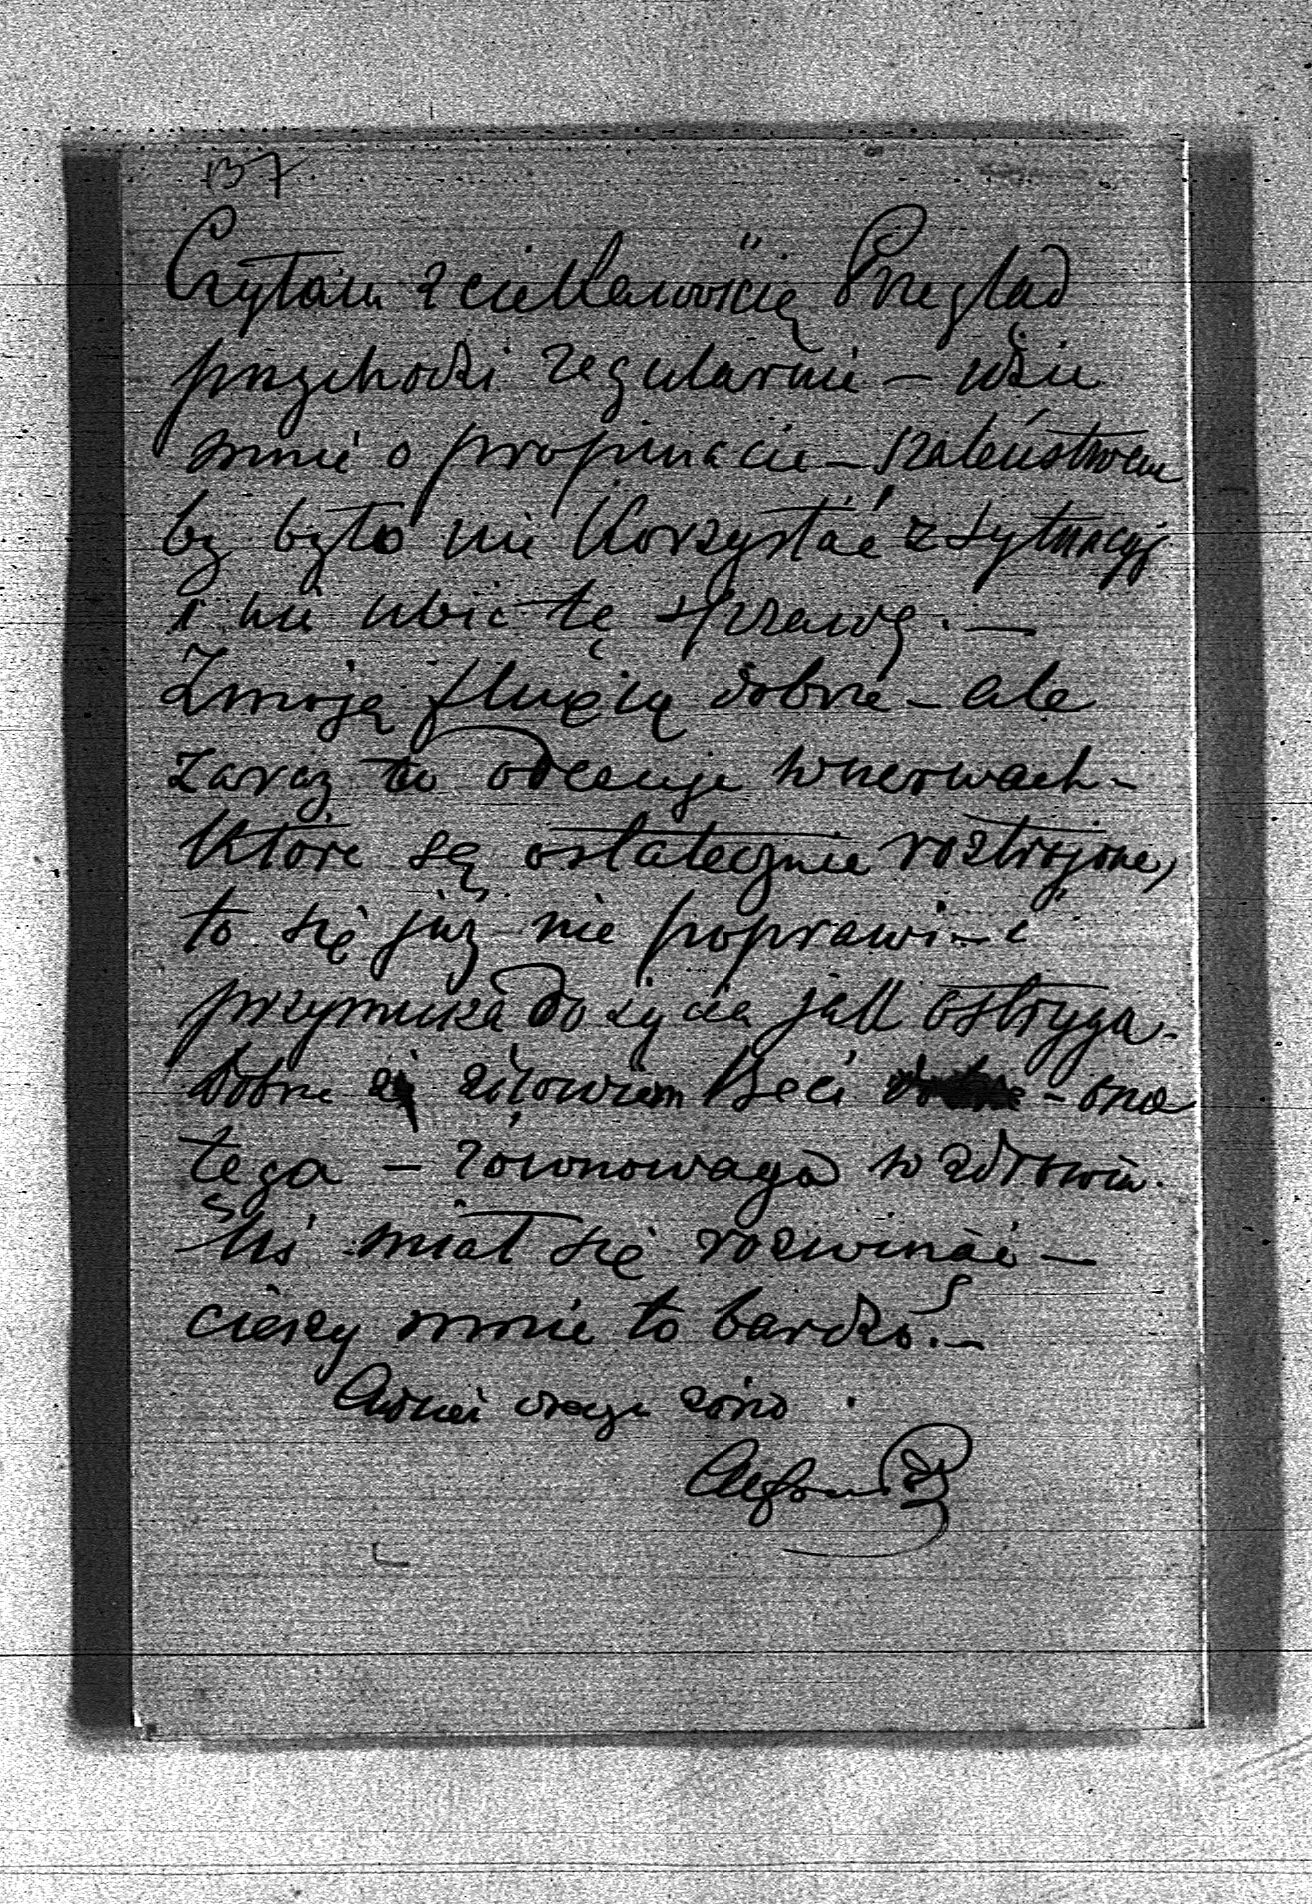 137
Czytam z ciekawością Przegląd
przychodzi regularnie — idzie
mnie o propinacie — szaleństwem
by było nie korzystać z sytuacyi
i nie ubić tę sprawę. —
Z moją fluxią dobrze — ale
zaraz to odczuję w nerwach —
które są ostatecznie roztrojone,
to się już nie poprawi — i
przymusza do życia jak ostryga —
dobrze z zdrowiem Beci — ona
tęga — równowaga w zdrowiu.
miał się rozwinąć —
cieszy mnie to bardzo. —
Alfred